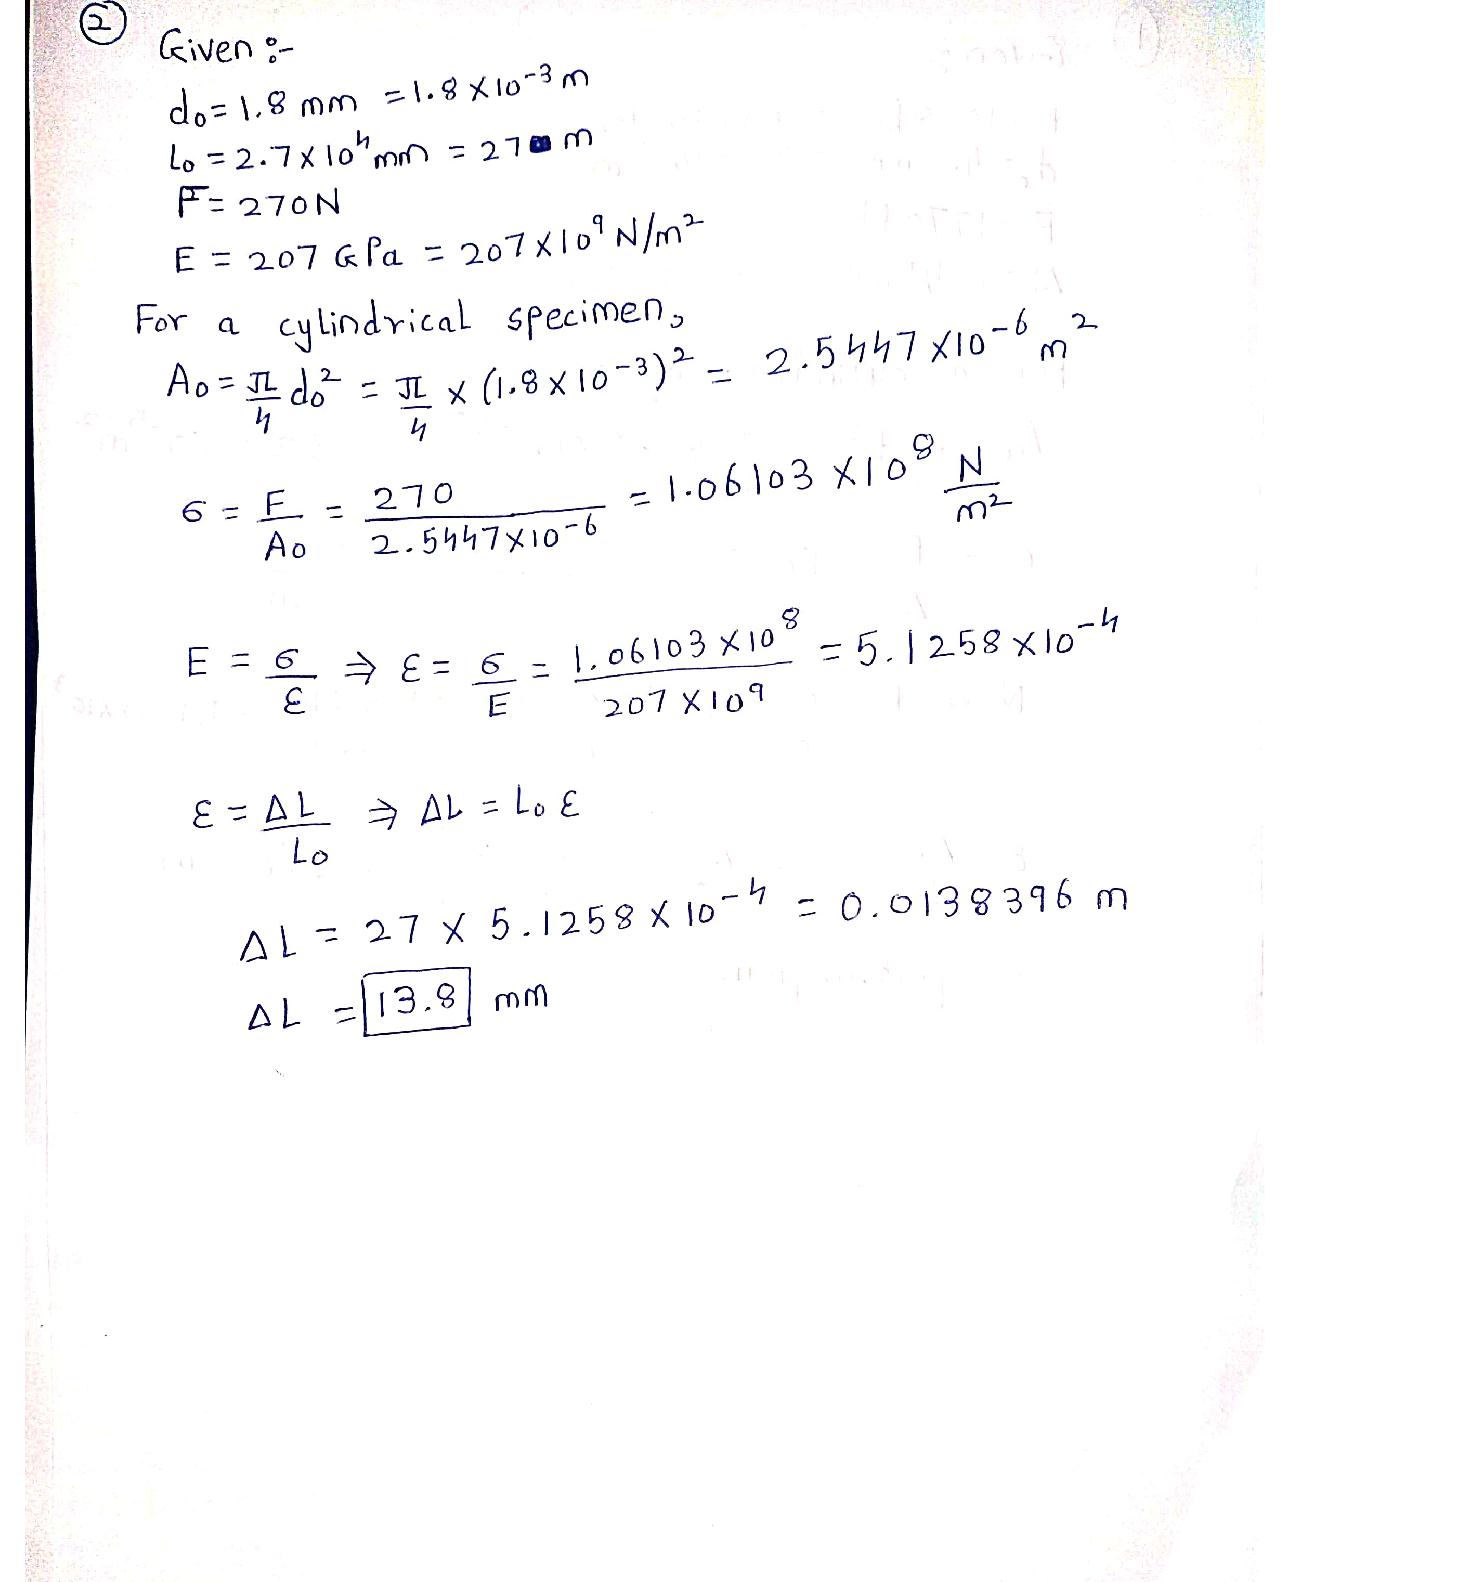 2
Given :-
do = 1.8 mm = 1.8 X 10-3 m
Lo = 2.7 X 104 mm = 27 m
F = 270N
E = 207 GPa = 207 X 109 N/m2
For a cylindrical specimen,
Ao = π/4 do2 = π/4 x (1.8 x 10-3)2 = 2.5447 X10-6 m2
σ = F/Ao = 270/2.5447X10-6 = 1.06103 X108 N/m2
E = σ/ε ⇒ ε = σ/E = 1.06103 X108/207 X109 = 5.1258 X10-4
ε = ΔL/Lo ⇒ ΔL = Lo ε
ΔL = 27 X 5.1258 X 10-4 = 0.0138396 m
ΔL = 13.8 mm